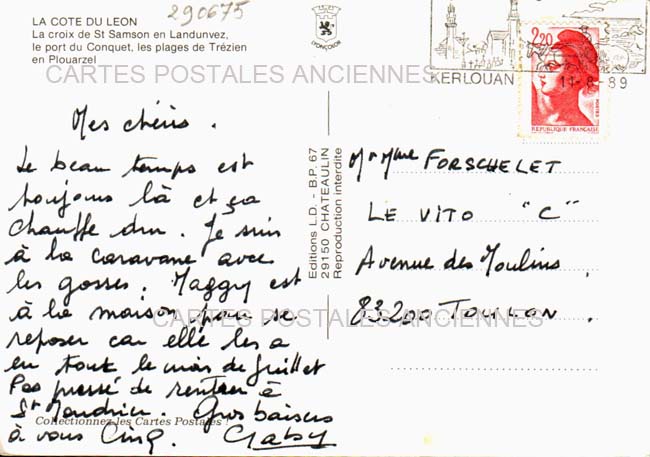 290675
LA COTE DU LEON
La croix de St Samson en Landunvez,
le port du Conquet, les plages de Trézien
en Plouarzel
CARTES POSTALES ANCIENNES
KERLOUAN
11-8-89
2,20
REPUBLIQUE FRANÇAISE
Mes chéris.
Le beau temps est
toujours là et ça
chauffe dur. Je suis
à la caravane avec
les gosses. Maggy est
à la maison pour se
reposer car elle les a
eu tout le mois de Juillet
Pas pressé de rentrer à
St Mandrier. Gros baisers
à vous Cinq. Gaby
Editions L.D. - B.P. 67
29150 CHATEAULIN
Reproduction interdite
Mr Mme FORSCHELET
LE VITO "C"
Avenue des Moulins
83200 TOULON.
CARTES POSTALES ANCIENNES
Collectionnez les Cartes Postales !